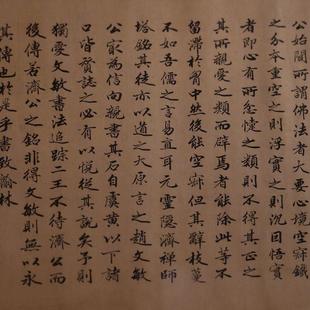 公始間所謂佛法者大要心境空寂鐵
之分本重空之則浮實之則沉因悟實
者即心有所忿懥之類則不得其正之
其所親愛之類而辟焉者能除此等不
留滯於胷中然後能空寂但其辭枝蔓
不如吾儒之言易直耳元靈隱濟禪師
塔銘其徒亦以道之大原言之趙文敏
公家為信向親書其石自虞黄以下諸
口皆贊誌之必有以悅從其說矣予則
獨愛文敏書法追踪二王不待濟公而
後傳若濟公之銘非得文敏則無以永
其傳也於是乎書致瀚林